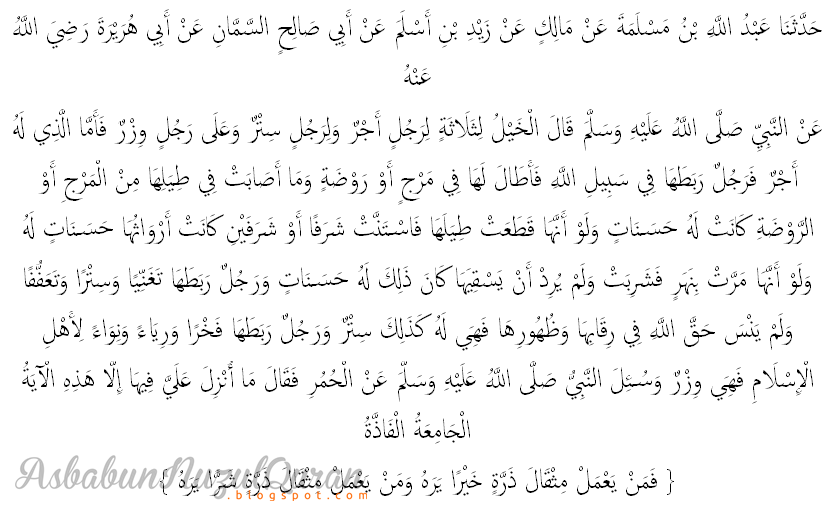 حَدَّثَنَا عَبْدُ اللَّهِ بْنُ مَسْلَمَةَ عَنْ مَالِكٍ عَنْ زَيْدِ بْنِ أَسْلَمَ عَنْ أَبِي صَالِحٍ السَّمَّانِ عَنْ أَبِي هُرَيْرَةَ رَضِيَ اللَّهُ
عَنْهُ
عَنْ النَّبِيِّ صَلَّى اللَّهُ عَلَيْهِ وَسَلَّمَ قَالَ الْخَيْلُ لِثَلَاثَةٍ لِرَجُلٍ أَجْرٌ وَلِرَجُلٍ سِتْرٌ وَعَلَى رَجُلٍ وِزْرٌ فَأَمَّا الَّذِي لَهُ
أَجْرٌ فَرَجُلٌ رَبَطَهَا فِي سَبِيلِ اللَّهِ فَأَطَالَ لَهَا فِي مَرْجٍ أَوْ رَوْضَةٍ وَمَا أَصَابَتْ فِي طِيَلِهَا مِنْ الْمَرْجِ أَوْ
الرَّوْضَةِ كَانَتْ لَهُ حَسَنَاتٍ وَلَوْ أَنَّهَا قَطَعَتْ طِيَلَهَا فَاسْتَنَّتْ شَرَفًا أَوْ شَرَفَيْنِ كَانَتْ أَرْوَاثُهَا حَسَنَاتٍ لَهُ
وَلَوْ أَنَّهَا مَرَّتْ بِنَهَرٍ فَشَرِبَتْ وَلَمْ يُرِدْ أَنْ يَسْقِيَهَا كَانَ ذَلِكَ لَهُ حَسَنَاتٍ وَرَجُلٌ رَبَطَهَا تَغَنِّيًا وَسِتْرًا وَتَعَفُّفًا
وَلَمْ يَنْسَ حَقَّ اللَّهِ فِي رِقَابِهَا وَظُهُورِهَا فَهِيَ لَهُ كَذَلِكَ سِتْرٌ وَرَجُلٌ رَبَطَهَا فَخْرًا وَرِيَاءً وَنِوَاءً لِأَهْلِ
الْإِسْلَامِ فَهِيَ وِزْرٌ وَسُئِلَ النَّبِيُّ صَلَّى اللَّهُ عَلَيْهِ وَسَلَّمَ عَنْ الْحُمُرِ فَقَالَ مَا أُنْزِلَ عَلَيَّ فِيهَا إِلَّا هَذِهِ الْآيَةُ
الْجَامِعَةُ الْفَاذَّةُ
{ فَمَنْ يَعْمَلْ مِثْقَالَ ذَرَّةٍ خَيْرًا يَرَهُ وَمَنْ يَعْمَلْ مِثْقَالَ ذَرَّةٍ شَرًّا يَرَهُ }
AsbabunNuzulQuran
.blogspot.com